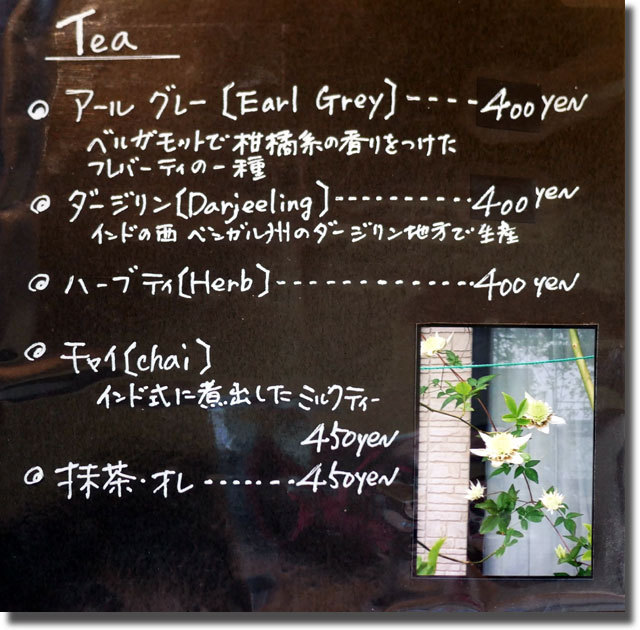 Tea
アールグレー〔Earl Grey〕----400yen
ベルガモットで柑橘系の香りをつけた
フレバーティの一種
ダージリン〔Darjeeling〕----------400yen
インドの西ベンガル州のダージリン地方で生産
ハーブティ〔Herb〕--------------400yen
チャイ〔chai〕
インド式に煮出したミルクティー
450yen
抹茶・オレ.......450yen